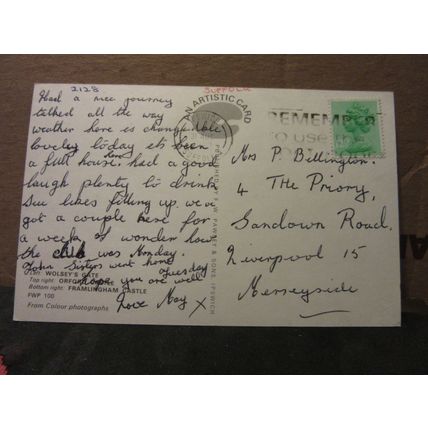 2128
SUFFOLK
Had a nice journey
talked all the way
weather here is changeable
lovely today its been
a full house here had a good
laugh plenty to drink
Sue likes filling up. we've
got a couple here for
a week. I wonder how
the club was Monday.
John Sisters went home
Tuesday
hope you are well
Love May X
WOLSEY'S GATE
Top right: ORFORD
Bottom right: FRAMLINGHAM CASTLE
FWP 100
From Colour photographs
AN ARTISTIC CARD
PUBLISHED BY F. W. PAWSEY & SONS, IPSWICH
REMEMBER
TO USE THE
Mrs P. Billington.
4 THe Priory,
Sandown Road,
Liverpool 15
Merseyside